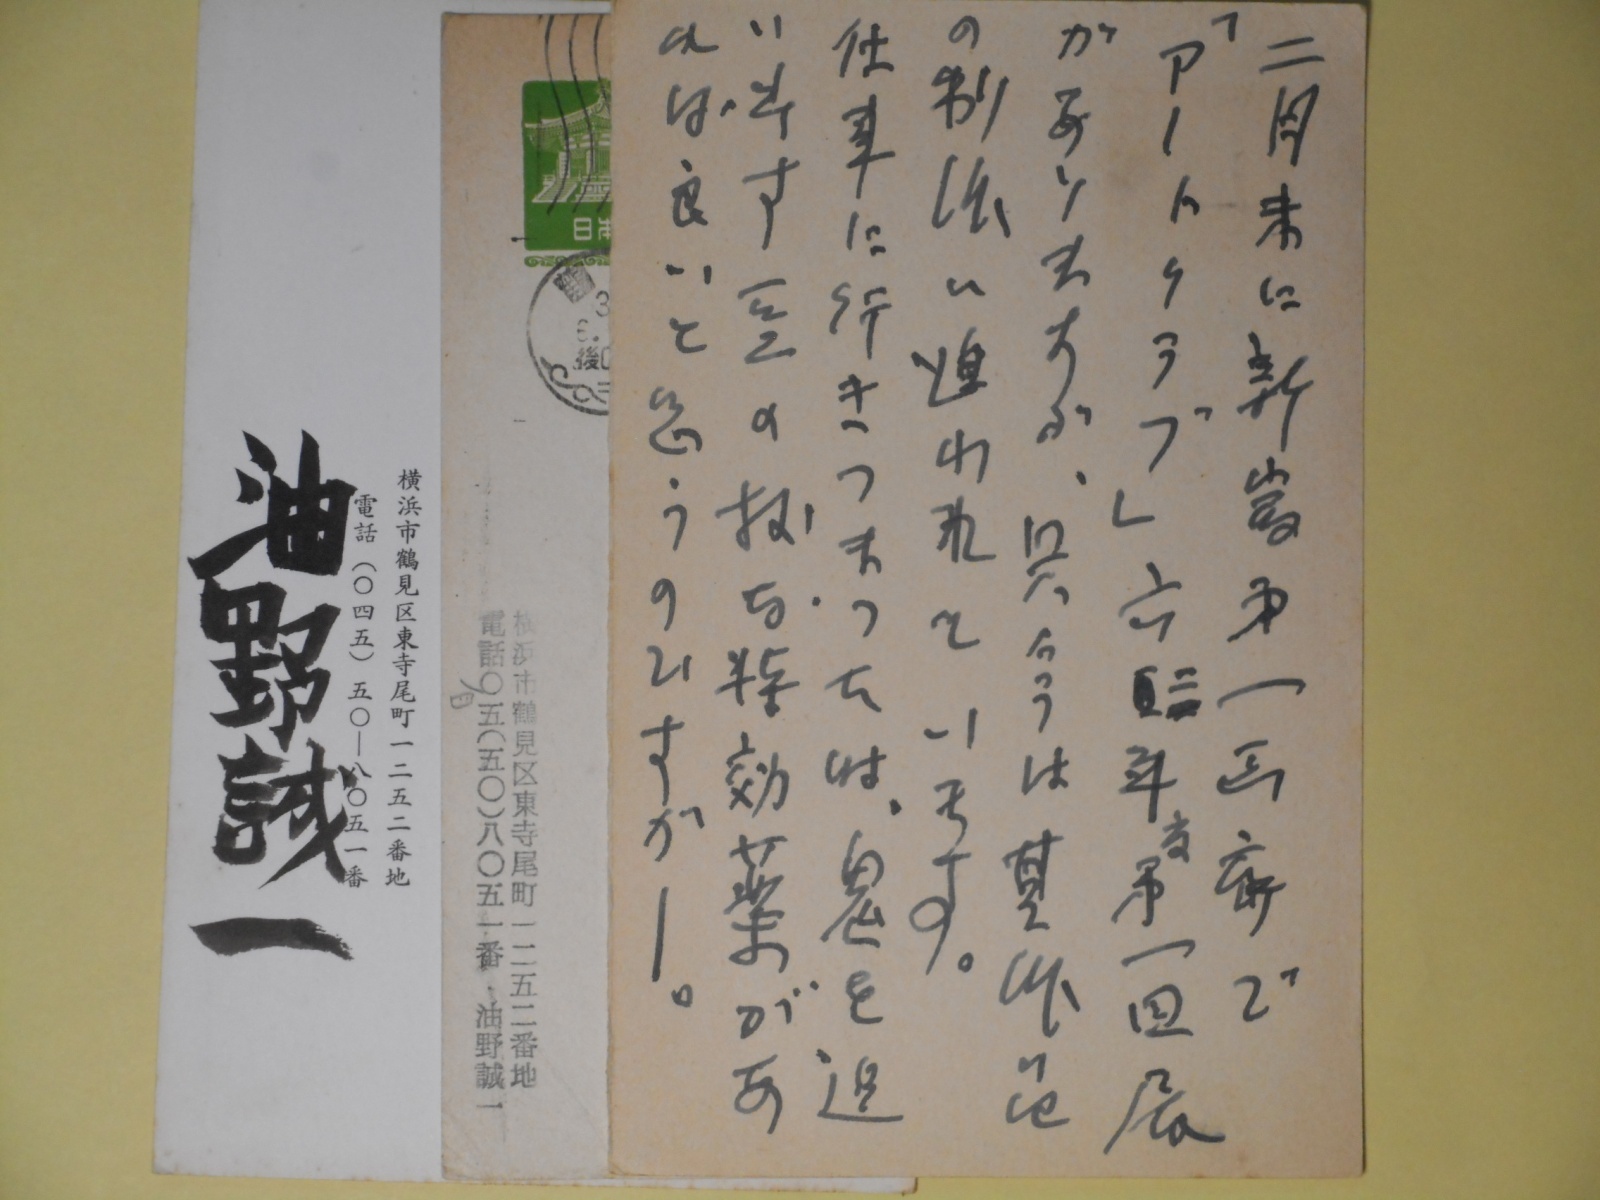 二月末に新宿第一画廊で
「アートクラブ」六四年度第一回展
がありますが、只今は其作品
の制作に追われています。
仕事に行きつまった時、鬼を追
います 豆の様な特効薬があ
れば良いと思うのですがー。
日本
後
横浜市鶴見区東寺尾町一二五二番地
電話〇五(五〇)八〇五一番・油野誠一
横浜市鶴見区東寺尾町一二五二番地
電話(〇四五)五〇一八〇五一番
油野誠一